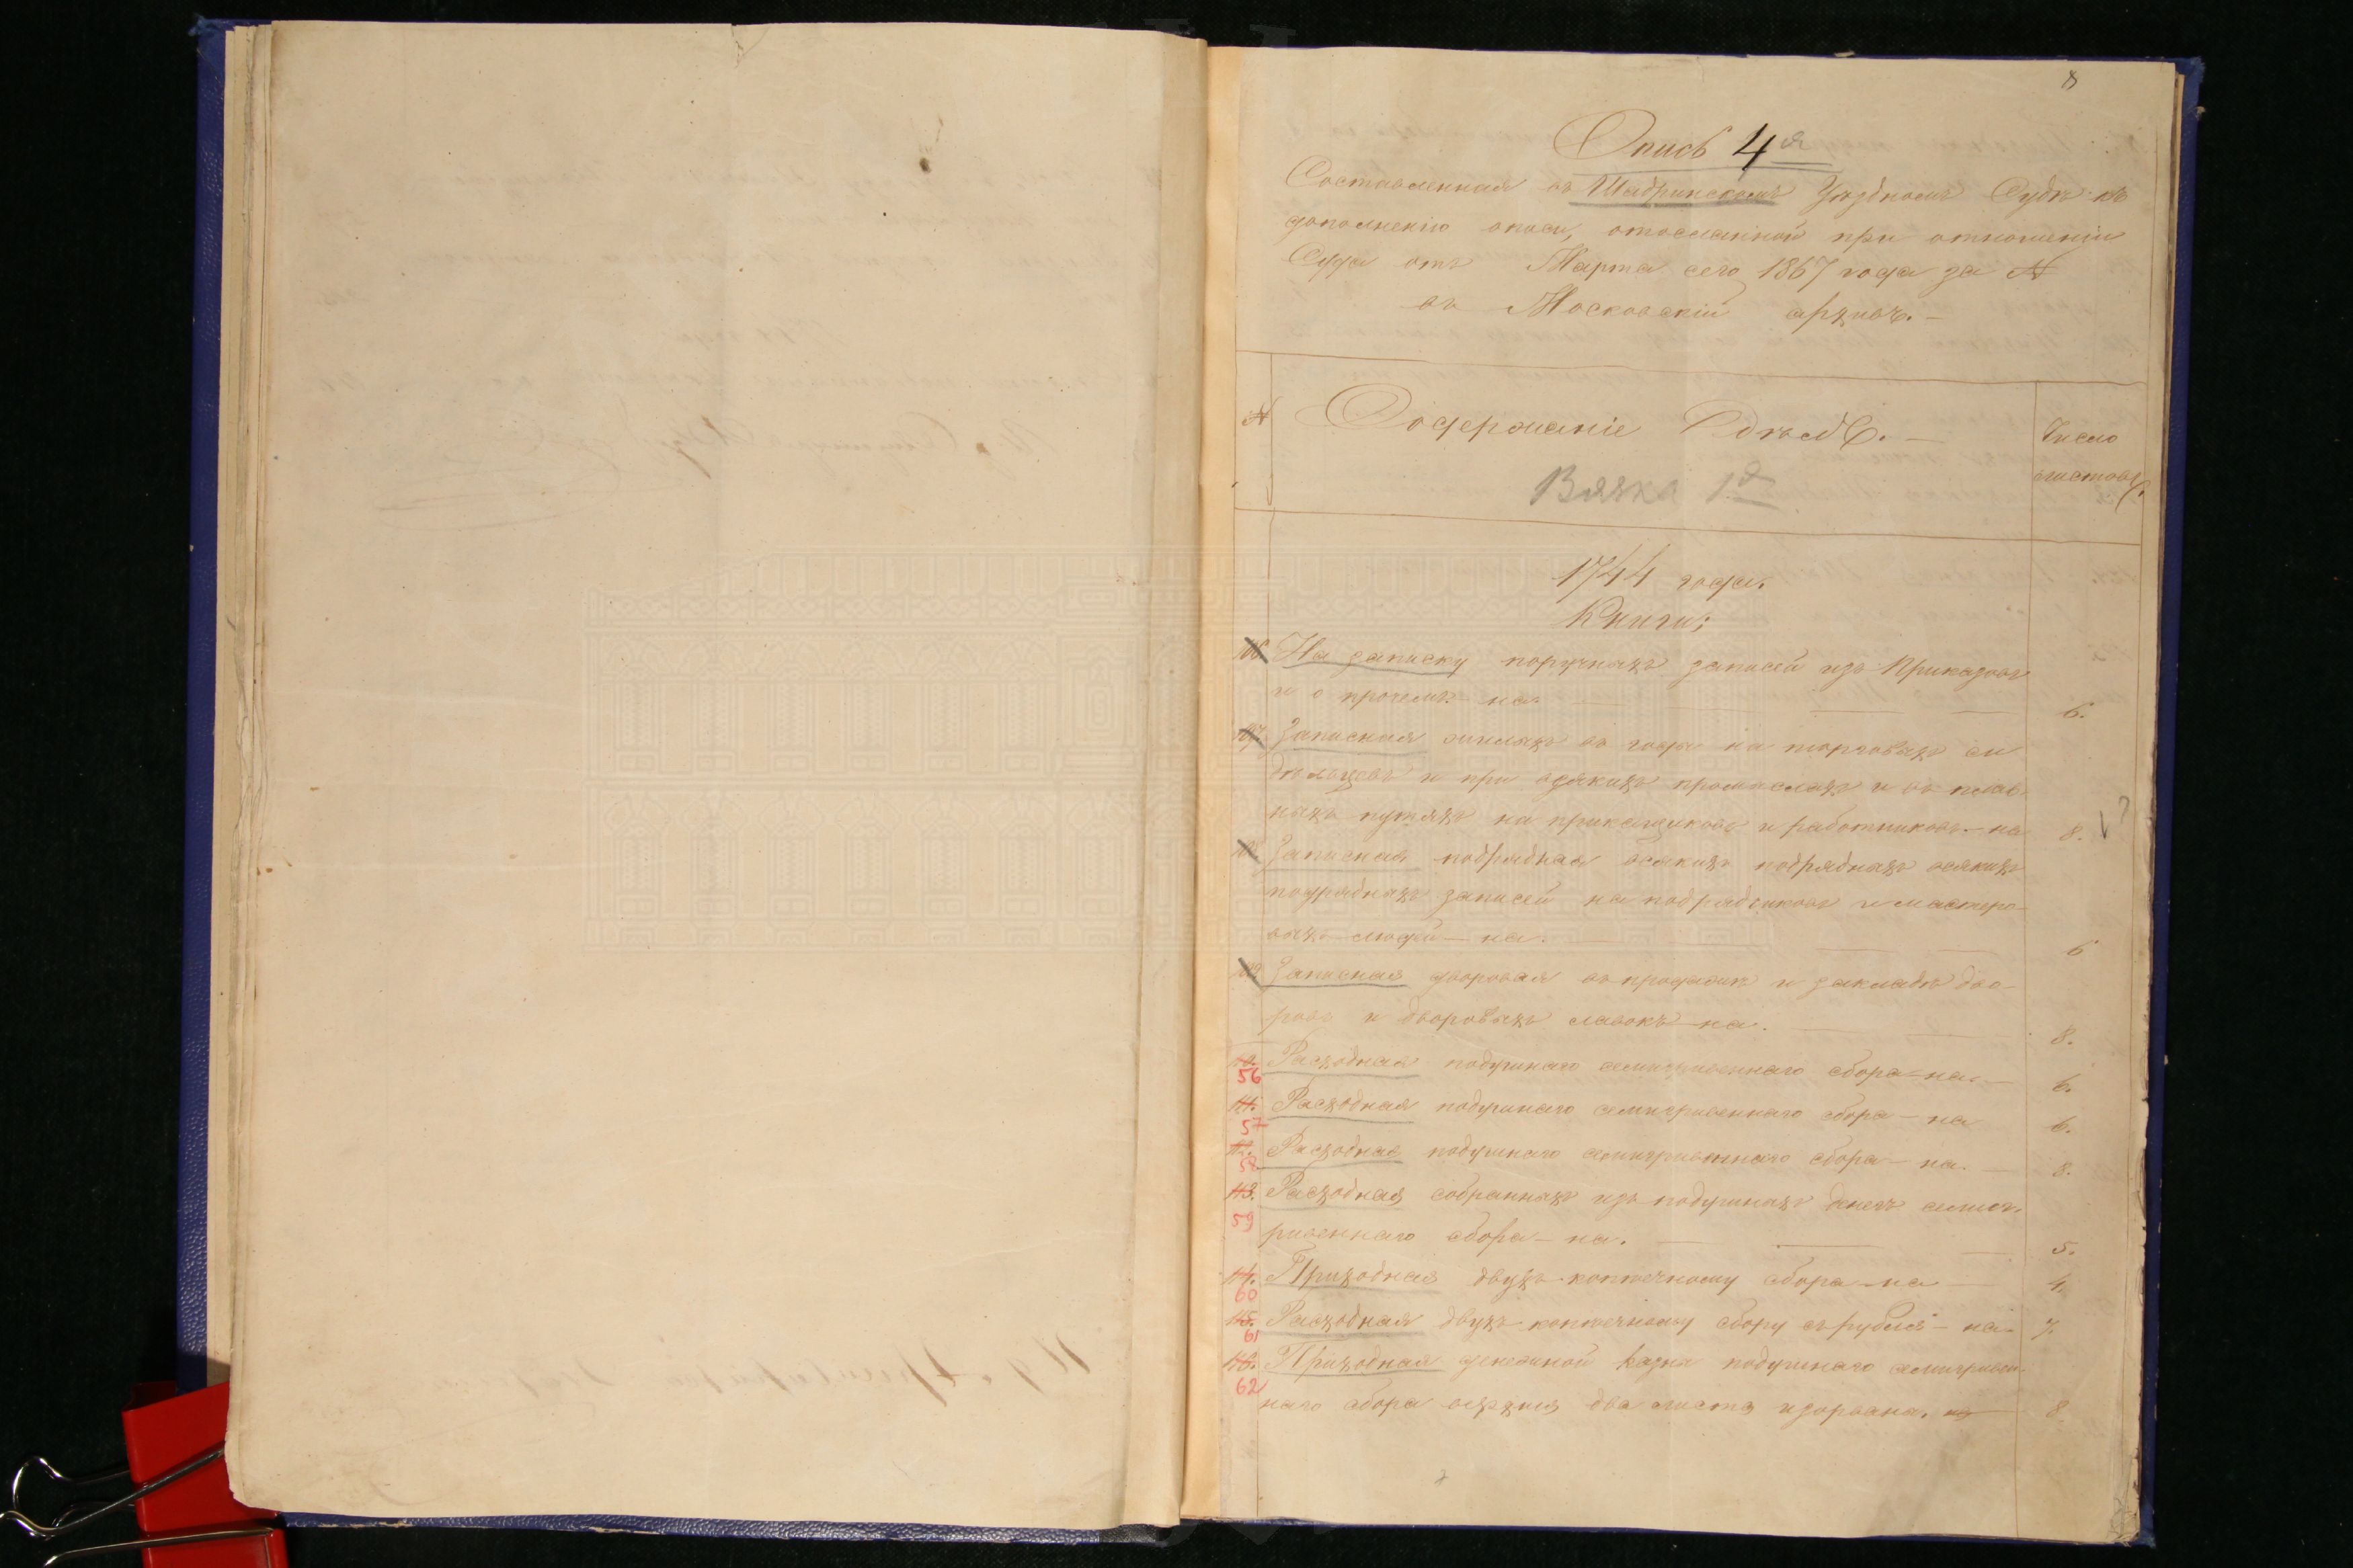 8
Опись 4я
Составленная въ Шадринскомъ Уѣздномъ Судѣ къ
дополненію описи, отосланной при отношеніи
Суда отъ Марта сего 1867 года за №
въ Московскій архивъ. —
№ Содержаніе Дѣлъ. — Число
листовъ.
Вязка 1я
1744 года.
Книги:
106 На записку поручныхъ записей изъ Приказовъ
и о прочемъ на 6.
107. Записная въ года на торговыхъ си
дѣльцовъ и при всякихъ промыслахъ и въ плав
ныхъ путяхъ на прикащиковъ и работниковъ — на 8. ?
108 Записная подрядная всякихъ подрядныхъ всякихъ
подрядныхъ записей на подрядчиковъ и мастеро-
выхъ людей — на. 6
109 Записная дворовая въ продажѣ и закладѣ дво-
ровъ и дворовыхъ лавокъ — на. 8.
110. Расходная подушнаго семигривеннаго сбора — на. 6.
56
111. Расходная подушнаго семигривеннаго сбора — на 6.
57
112. Расходная подушнаго семигривеннаго сбора — на. 8.
58
113. Расходная собранныхъ изъ подушныхъ денегъ семиг-
59
ривеннаго сбора — на. 5.
114. Приходная двухъ копѣечному сбора — на 4.
60
115. Расходная двухъ копѣечному сбору съ рубля — на. 7.
61
116. Приходная денежной казны подушнаго семигривен-
62
наго сбора два листа изорвана. на 8.